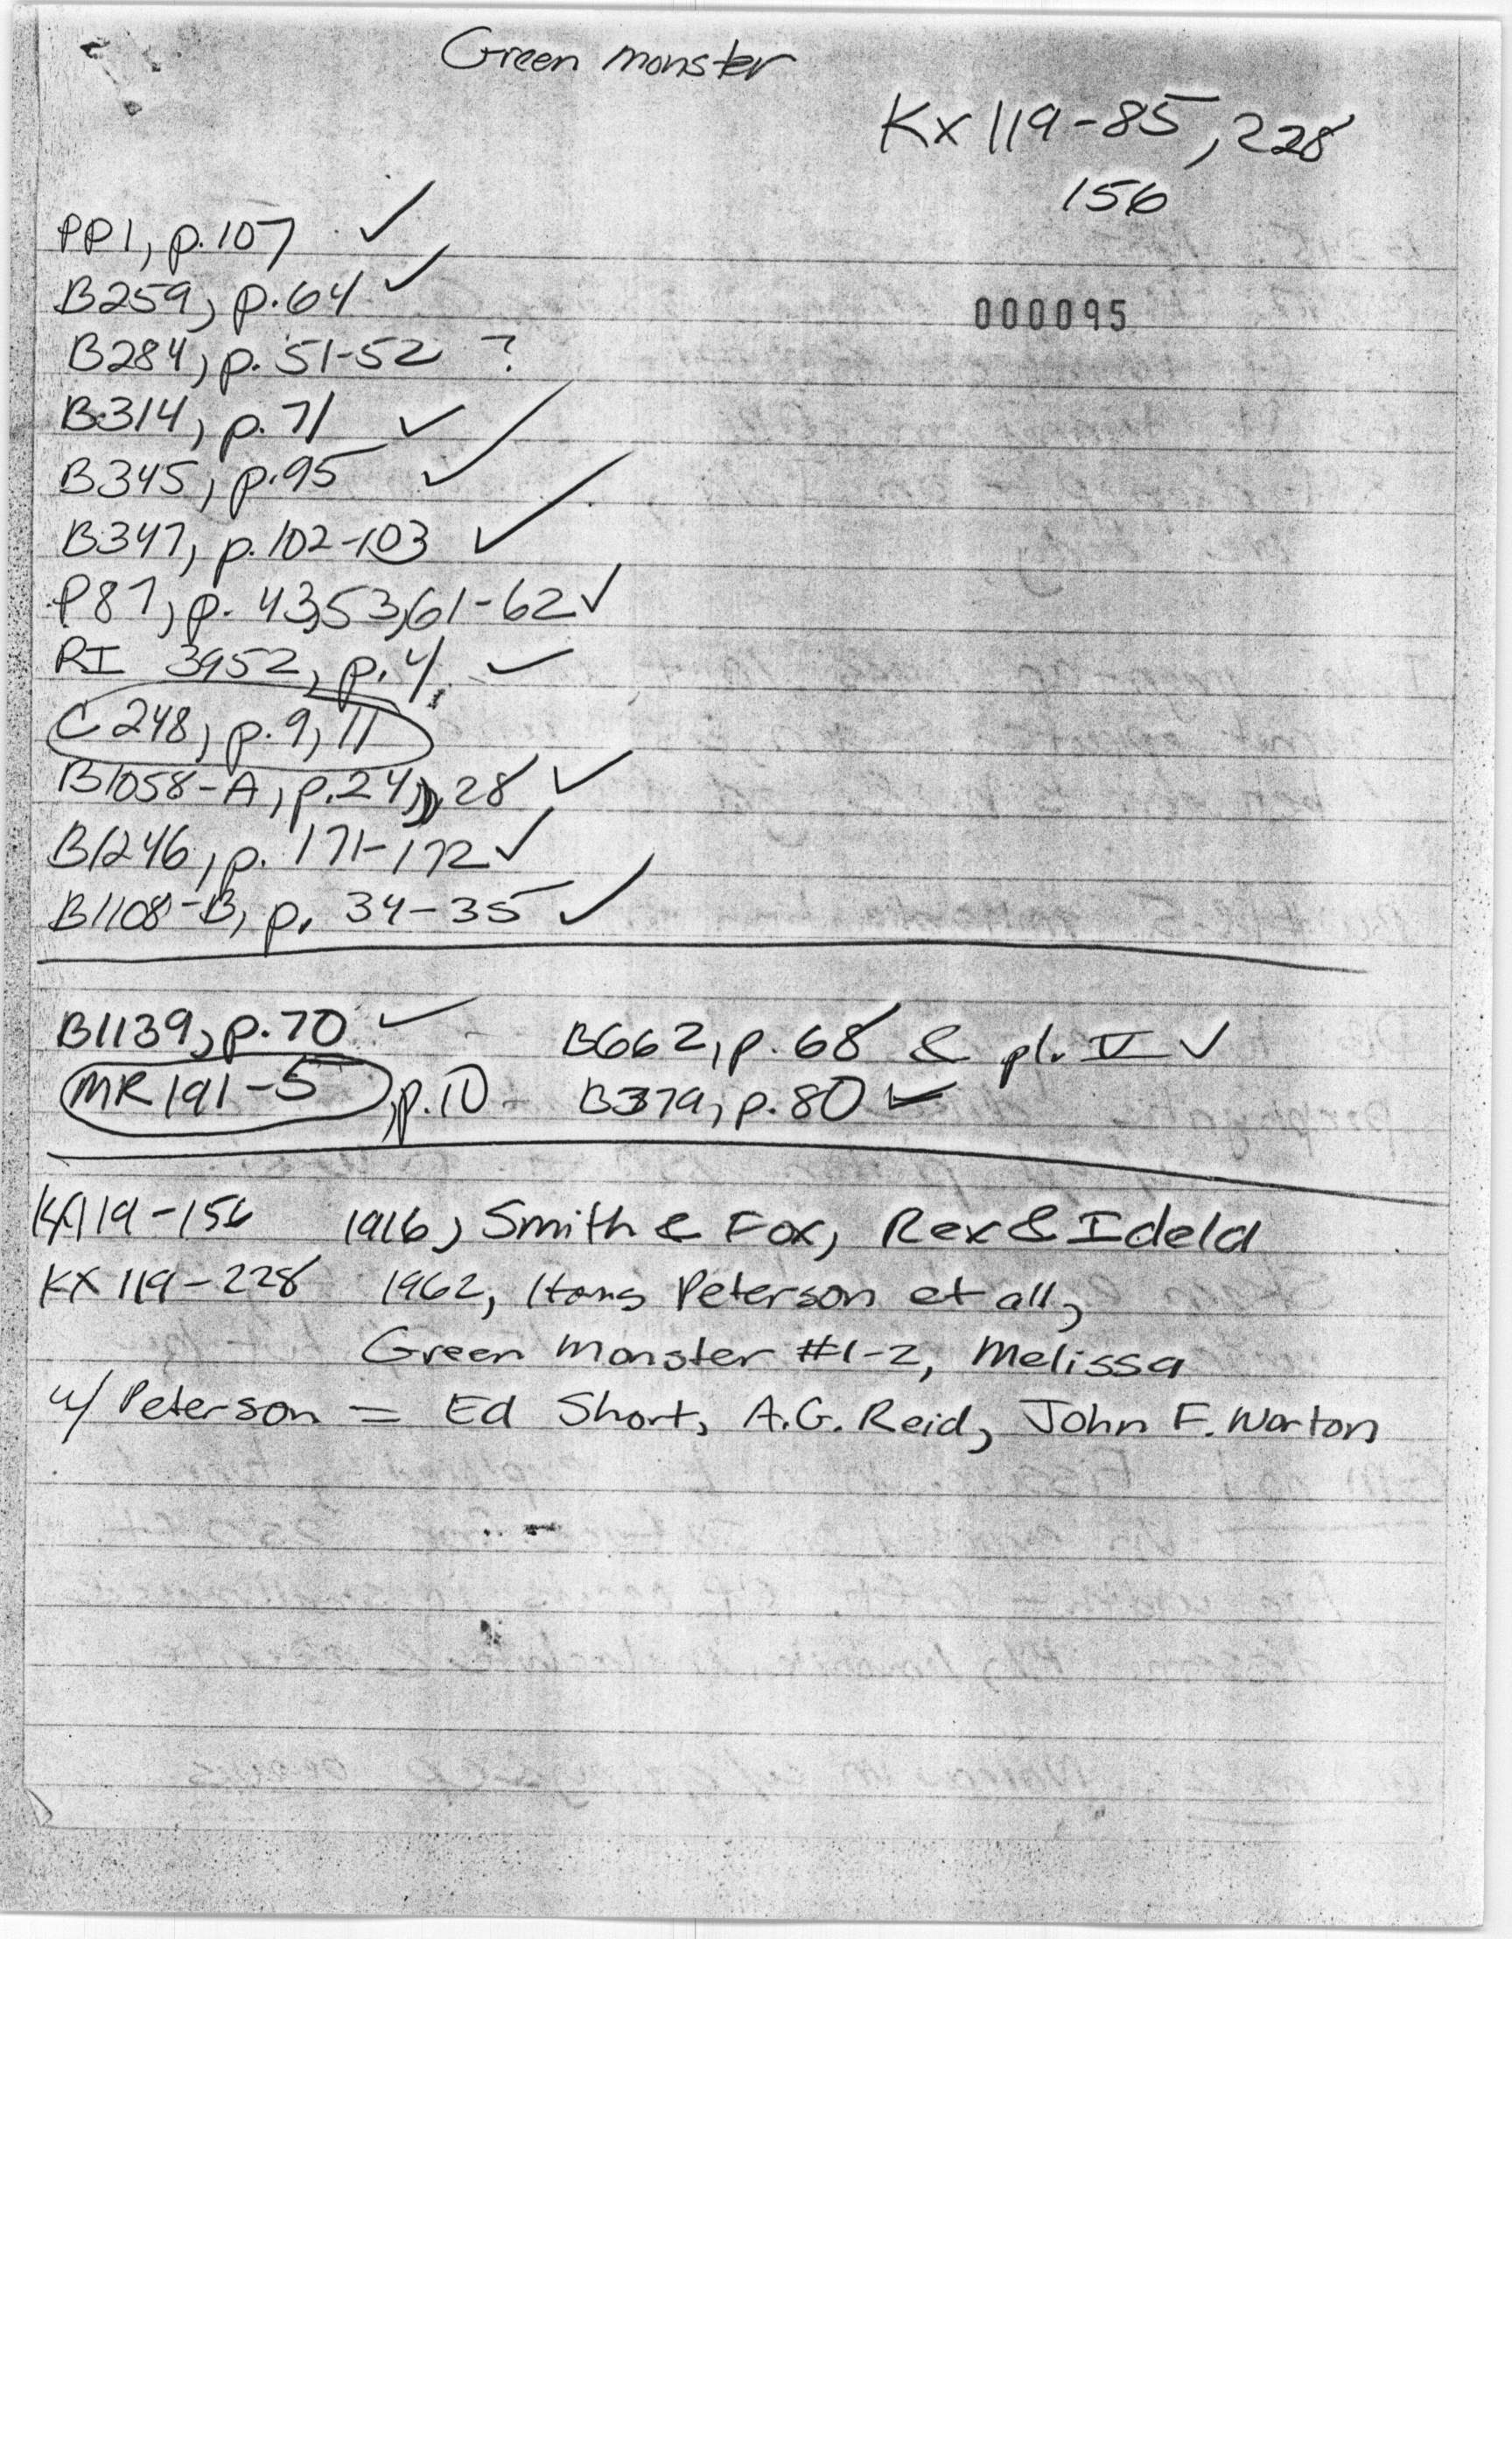 Green monster
Kx 119-85, 228
156
PP1, p.107 ✓
B259, p.64 ✓
000095
B284, p. 51-52 ?
B314, p. 71 ✓
B345, p.95 ✓
B347, p.102-103 ✓
P87, p. 43,53,61-62 ✓
RI 3952, p.4 ✓
C248, p.9, 11
B1058-A, p.24, 28 ✓
B1246, p. 171-172 ✓
B1108-B, p. 34-35 ✓
B1139, p.70 ✓ B662, p. 68 & pl. V ✓
MR 191-5, p.10 B379, p.80 ✓
KX119-156 1916, Smith & Fox, Rex & Ideld
KX 119-228 1962, Hans Peterson et all,
Green Monster #1-2, Melissa
w/ Peterson = Ed Short, A.G. Reid, John F. Warton